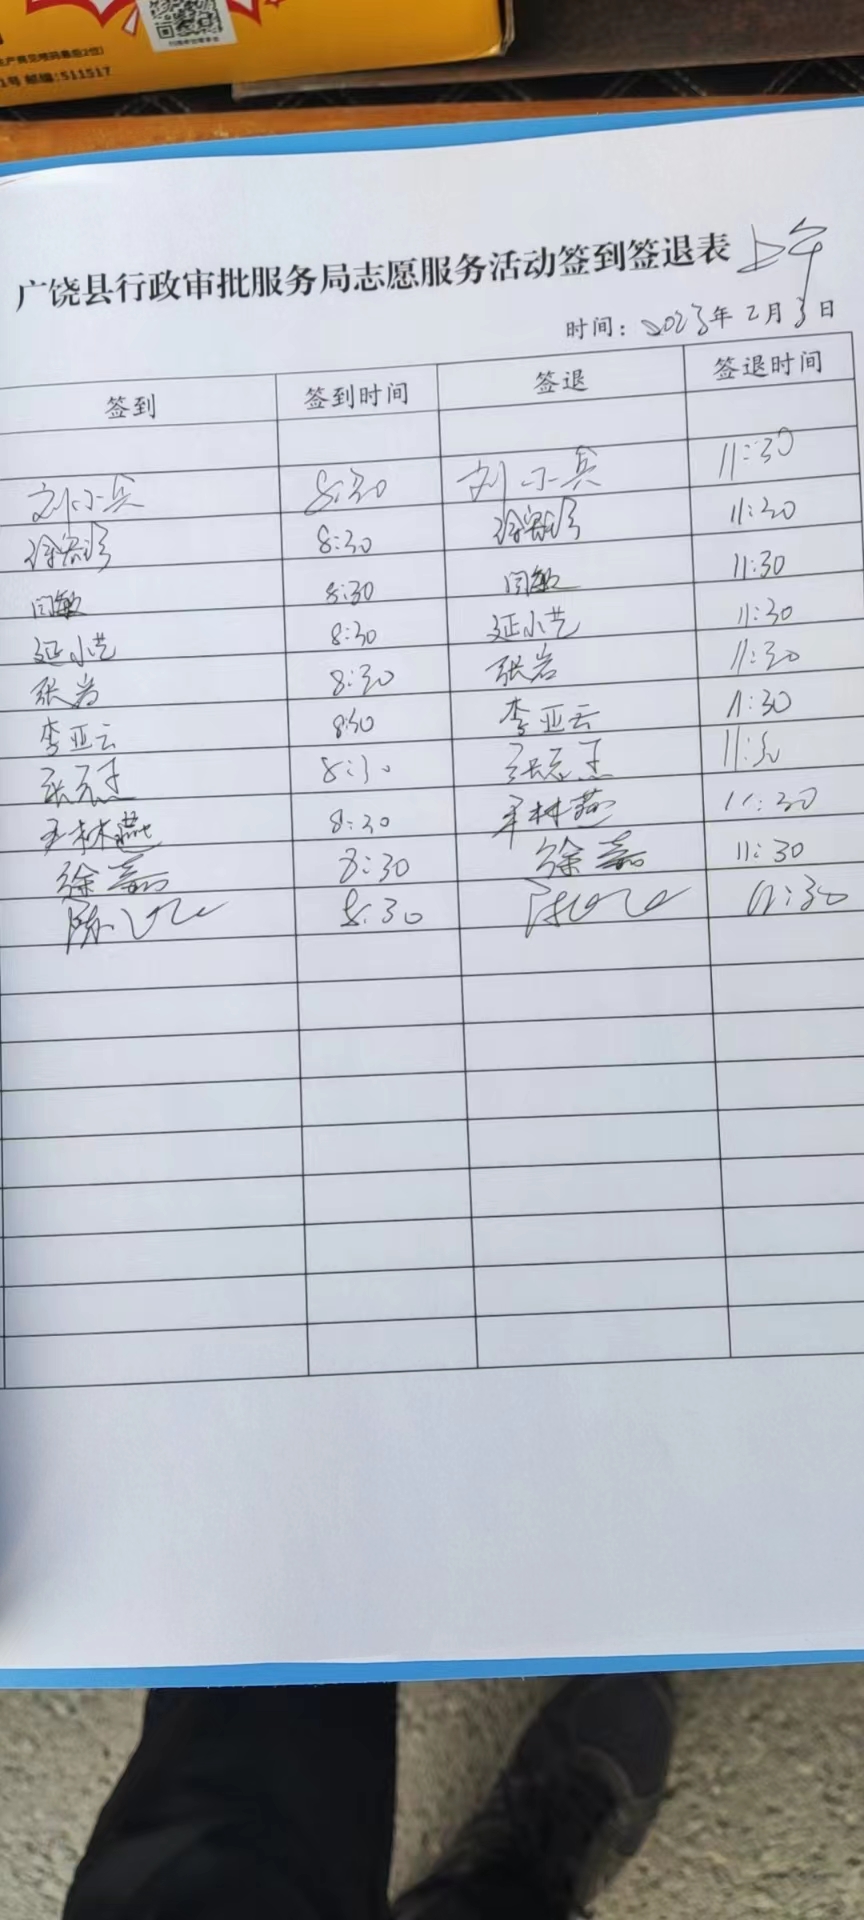 1号 邮编:511517
广饶县行政审批服务局志愿服务活动签到签退表 上午
时间：2023年2月3日
签到 签到时间 签退 签退时间
刘小兵 8:30 刘小兵 11:30
8:30 11:30
闫敏 8:30 闫敏 11:30
延小艺 8:30 延小艺 11:30
张岩 8:30 张岩 11:30
李亚云 8:30 李亚云 11:30
8:30 11:30
王林燕 8:30 王林燕 11:30
徐嘉 8:30 徐嘉 11:30
8:30 11:30